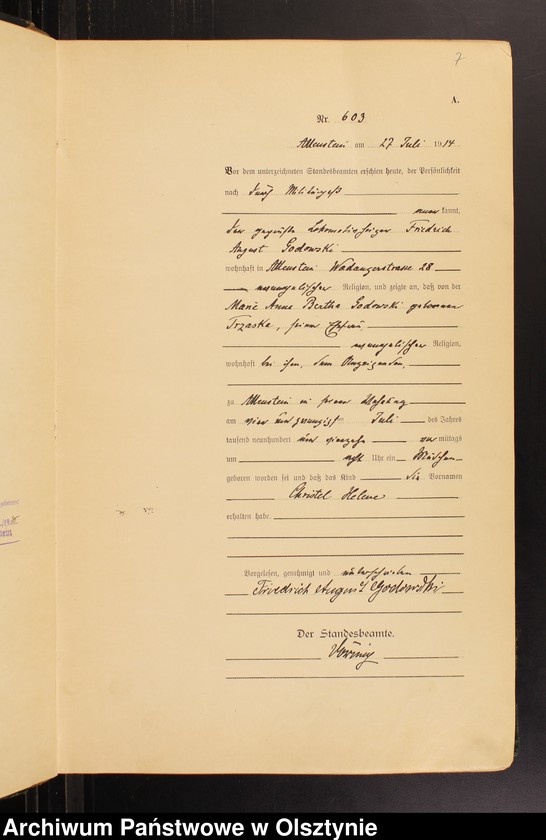 7
A.
Nr. 603
Allenstein am 27 Juli 1914
Vor dem unterzeichneten Standesbeamten erschien heute, der Persönlichkeit
nach durch Militärpaß
kannt,
der geprüfte Lokomotivheizer Friedrich
August Godowski
wohnhaft in Allenstein Wadangerstrasse 28
evangelischer Religion, und zeigte an, daß von der
Marie Anna Bertha Godowski geborenen
Trzaska, seiner Ehefrau
evangelischer Religion,
wohnhaft bei ihm, dem Anzeigenden,
zu Allenstein in seiner Wohnung
am vier und zwanzigsten Juli des Jahres
tausend neunhundert und vierzehn vormittags
um acht Uhr ein Mädchen
geboren worden sei und daß das Kind die Vornamen
Christel Helene
erhalten habe.
Vorgelesen, genehmigt und unterschrieben
Friedrich August Godowski
Der Standesbeamte.
Archiwum Państwowe w Olsztynie